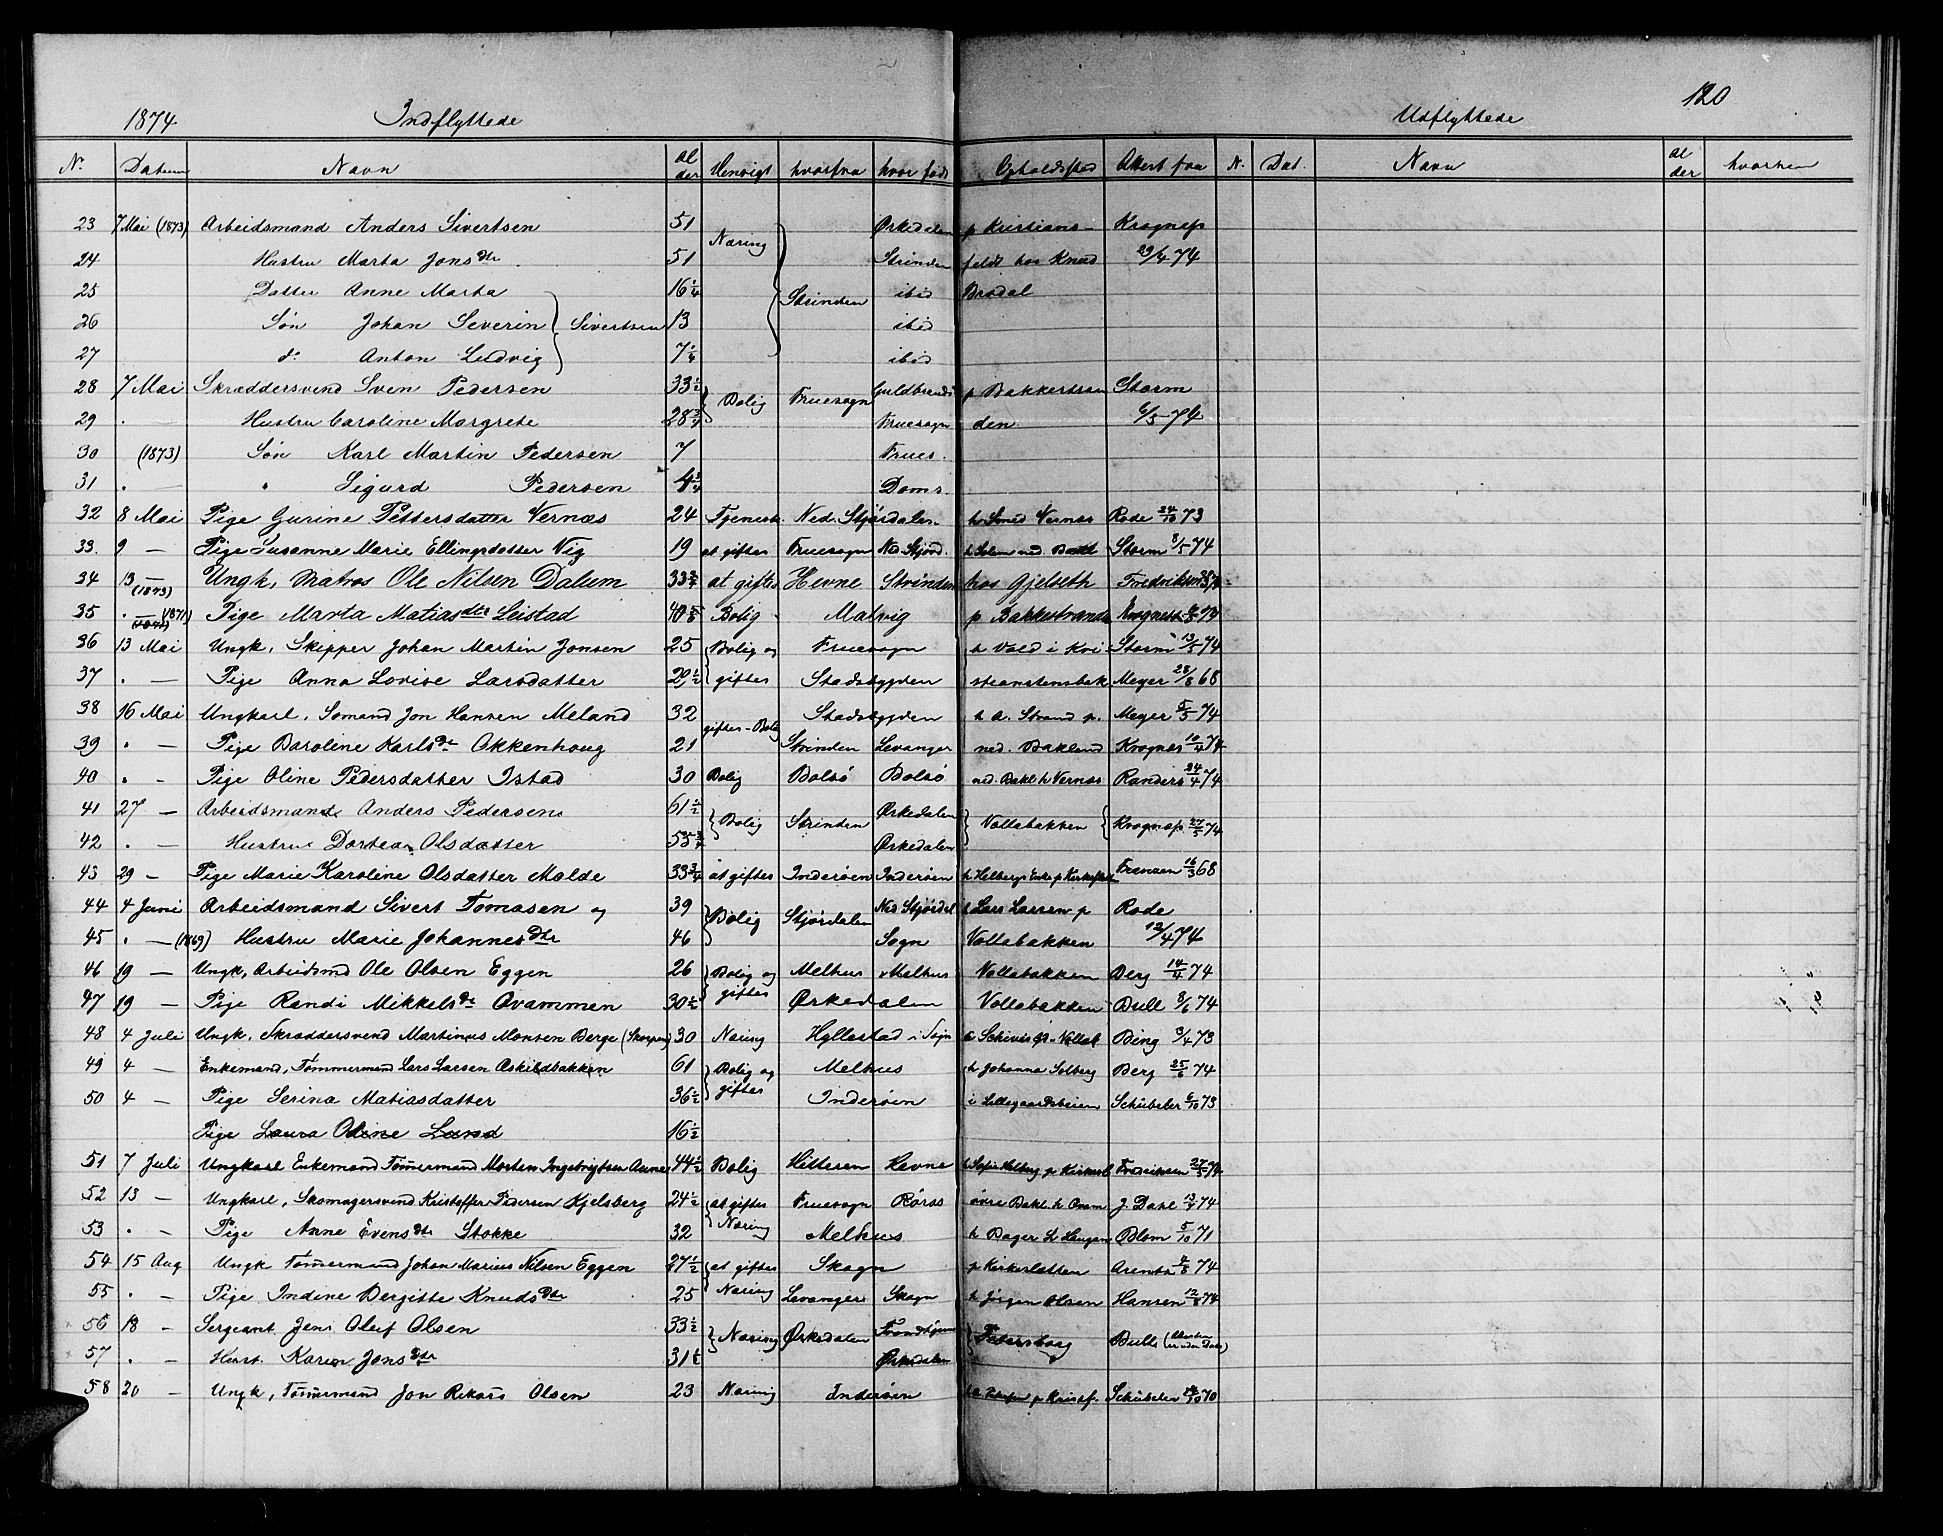 120
1874 Indflyttede Udflyttede
Nr. Datum Navn Alder Henvigt hvorfra hvor født Opholdssted Attest fra N. Dat. Navn Alder hvorhen
23 7 Mai (1873) Arbeidsmand Anders Sivertsen 51 Næring Ørkedalen p Kristians- Krogness
24 Hustru Marta Jonsdtr. 51 Strinden feldt hos Knud 29/4 74
25 Datter Anne Marta 16 1/4 Strinden ibid Brødal
26 Søn Johan Severin Sivertsen 13 ibid
27 do Anton Ludvig 7 1/4 ibid
28 7 Mai Skræddersvend Sven Pedersen 33 1/2 Bolig Fruesogn Guldbrands p Bakkestran Storm
29 . Hustru Caroline Margrete 28 3/4 Fruesogn den 6/5 74
30 (1873) Søn Karl Martin Pedersen 7 Frues.
31 . — " Sigurd Pedersen 4 3/4 Doms.
32 8 Mai Pige Gurine Pettersdatter Vernæs 24 Tjeneste Ned. Stjørdalen h. Smed Vernæs Rode 24/10 73
33. 9 — Pige Susanne Marie Ellingsdatter Vig 19 at giftes Fruesogn Ned. Stjørd. Storm 8/5 74
34 13 — (1873) Ungk, Matros Ole Nilsen Dalum 33 3/4 at giftes Hevne Strinden hos Gjelseth Fredriksen
35 . — (1871) Pige Marta Matiasdtr Leistad 40 5/8 Bolig Malvig p Bakkestrand Krogness 73
36 13 Mai Ungk, Skipper Johan Martin Jonsen 25 Bolig og Fruesogn h Vold i Kri- Storm 13/5 74
37 . — Pige Anna Lovise Larsdatter 29 1/2 giftes Stadsbygden stianstensbak. Meyer 28/8 68
38 16 Mai Ungkarl, Sømand Jon Hansen Meland 32 giftes - Bolig Stadsbygden h A. Strand p. Meyer 5/5 74
39 . — Pige Baroline Karlsdtr Okkenhoug 21 Strinden Levanger ned. Baklund Krognes 10/4 74
40 . - Pige Oline Pedersdatter Istad 30 Bolig Bolsø Bolsø ned. Bakl. h Vernæs Randers 24/4 74
41 27 — Arbeidsmand Anders Pedersen 61 1/2 Bolig Strinden Ørkedalen Vollabakken Krogness 27/5 74
42 . — Hustru Dortea Olsdatter 55 3/4 Ørkedalen
43 29 — Pige Marie Karoline Olsdatter Molde 33 3/4 at giftes Inderøen Inderøen h Helbergs Enke p Kirkeslet Franzen 16/3 68
44 4 Juni Arbeidsmand Sivert Tomasen og 39 Bolig Stjørdalen Ned Stjørdal h Lars Larsen p Rode
45 . — (1869) Hustru Marie Johannesdtr 46 Sogn Vollabakken 12/4 74
46 19 — Ungk, Arbeidsmd Ole Olsen Eggen 26 Bolig og Melhus Melhus Vollabakken Berg 14/4 74
47 19 — Pige Randi Mikkelsdtr Qvammen 30 1/2 giftes Ørkedalen Vollabakken Bull 8/6 74
48 4 Juli Ungk, Skræddersvend Martinus Monsen Berge (Skorpen) 30 Næring Hyllestad i Sogn Bing 3/4 73
49 4 — Enkemand, Tømmermand Lars Larsen Oskildbakken 61 Bolig og Melhus h Johanna Solberg Berg 25/6 74
50 4 — Pige Serina Matiasdatter 36 1/2 giftes Inderøen i Lillegaardsbeien Schübeler 6/10 73
Pige Laura Oline Lund 16 1/2
51 7 Juli Ungkarl Enkemand Tømmermand Morten Ingebrigtsen Aune 44 1/2 Bolig Hitteren Hevne h Sofie Helberg p Kirkesl. Fredriksen 27/5 74
52 13 — Ungkarl, Skomagersvend Kristoffer Pedersen Kjelsberg 24 1/2 at giftes Fruesogn Røros øvre Bakl. h Qvam J. Dahl 13/7 74
53 . — Pige Anne Evensdtr Stokke 32 Næring Melhus h Bager Blom 5/10 71
54 15 Aug Ungk Tømmermand Johan Marius Nilsen Eggen 27 1/2 at giftes Skogn p Kirkesletten Arentz 74
55 . — Pige Indine Bergitte Knudsdtr 25 Næring Levanger Skogn h Jørgen Olsen Hansen 12/8 74
56 18 - Sergeant Jens Oluf Olsen 33 1/2 Næring Ørkedalen Trondhjem Petersborg Bulle (Attesten er uden Dato)
57 . — Hust. Karen Jonsdtr 31 1/2 Ørkedalen
58 20 — Ungk, Tømmermand Jon Rekårs Olsen 23 Næring Inderøen p Kristf. Schübeler 70